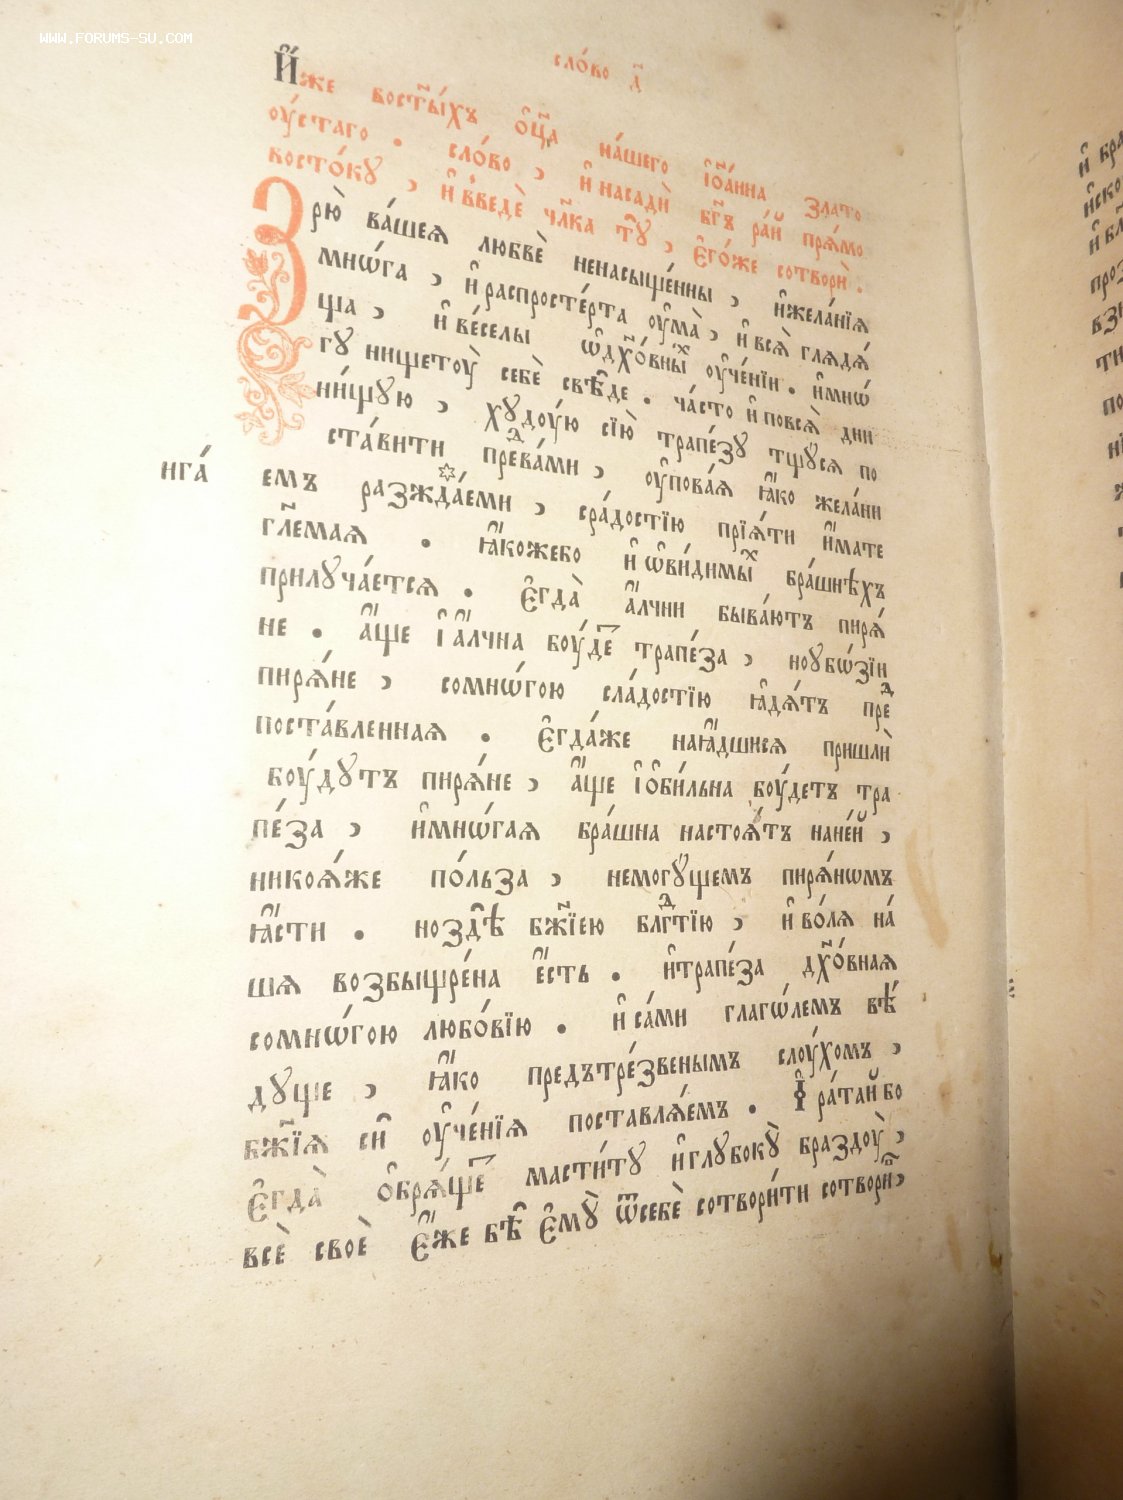 WWW.FORUMS-SU.COM
сло́во д҃
И҆́же востⷯы́хъ ѻ҆ц҃а на́шего і҆ѡа́нна злато
оу́стаго . сло́во , и҆ насадѝ бг҃ъ ра́й прѧ́мо
восто́кꙋ , и҆ введѐ чл҃ка тꙋ̀ , є҆го́же сотворѝ .
Зрю̀ ва́шеѧ любвѐ ненасыще́нны , и҆жела́нїѧ
мнѡ́га , и҆ распросте́рта оу҆ма̀ , и҆ всѧ̀ глѧдѧ́
ща , и҆ ве́селы ѡ҆ дх҃о́вныⷯ оу҆че́нїи . и҆мнѡ́
гꙋ нищетоу̀ себѐ свѣ́де . ча́сто и҆ повсѧ̀ дни
ни́щꙋю , хꙋдоу́ю сїю̀ трапе́зꙋ тщꙋ́сѧ по
ста́вити преⷣва́ми , оу҆пова́ѧ ꙗ҆́ко жела́ни
нга́
емъ разжда́еми , сра́достїю прїѧ́ти и҆́мате
гл҃емаѧ . ꙗ҆́кожебо и҆ ѡ҆ви́димыⷯ бра́шнѣхъ
прилꙋча́етсѧ . є҆гда̀ а҆́лчни быва́ютъ пирѧ́
не . а҆́ще і҆ а҆́лчна боу́де трапе́за , ноубѡ́зїи
пирѧ́не , сомнѡ́гою сла́достїю ꙗ҆дѧ́тъ преⷣ
поста́вленнаѧ . є҆гда́же наꙗ҆́дшисѧ пришлѝ
боу́дꙋтъ пирѧ́не , а҆́ще і҆ ѻ҆би́льна боу́детъ тра
пе́за , и҆мнѡ́гаѧ бра́шна настоѧ́тъ нане́й ,
никоѧ́же по́льза , немогꙋ́щемъ пирѧ́нѡмъ
ꙗ҆́сти . ноздѣ̀ бж҃їею блгⷣтїю , и҆ во́лѧ на́
шѧ возбыщре́на є҆́сть . и҆трапе́за дх҃о́внаѧ
сомнѡ́гою любо́вїю . и҆ са́ми глаго́лемъ вѣ́
дꙋще , ꙗ҆́ко предътре́звенымъ слоу́хомъ ,
бж҃їѧ сѝ оу҆че́нїѧ поставлѧ́емъ . І҆ ра́тай бо
є҆гда̀ ѻ҆брѧ́ще масти́тꙋ и҆ глꙋбокꙋ̀ браздоу̀ ,
всѐ своѐ є҆́же бѣ̀ є҆мꙋ̀ ѿсебѐ сотвори́ти сотворѝ ,